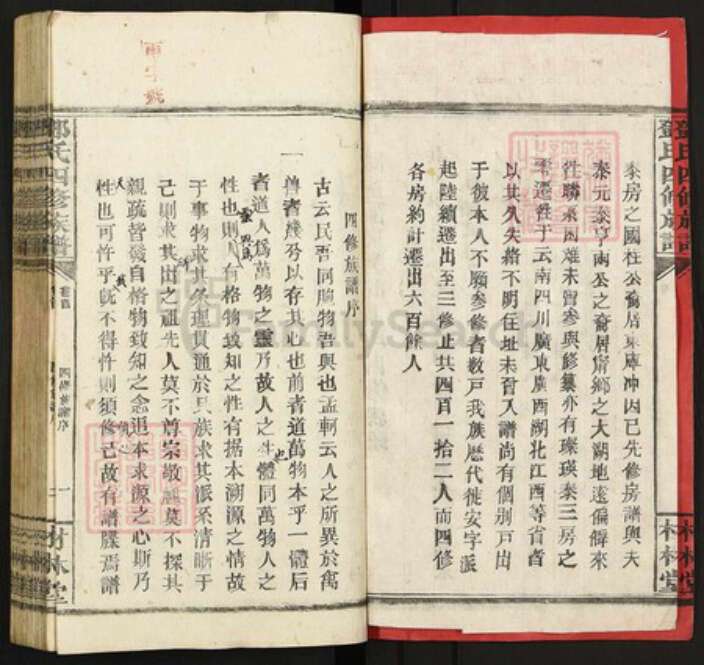 鄧氏四修族譜
泰房之國柱公裔居東庫冲因己先修房譜與夫
泰元泰亨兩公之裔居甯鄉之大湖地遠偏僻來
往勝艱因難未曾參與修纂亦有璨瑛泰三房之
零遷徃于云南四川廣東廣西湖北江西等省者
以其久失絡不明住址未曾入譜尚有個別戸出
于彼本人不願參修者数戸我族歷代徙安字派
起陸續遷出至三修止共四百一拾二人而四修
各房約計遷出六百餘人
材林堂
四修族譜序
古云民吾同胞物吾與也孟軻云人之所異於禽
獸者幾兮以存其心也前者道萬物本乎一體后
者道人爲萬物之靈乃故人之生體同萬物人之
性也則人有格物致知之性有据本溯源之情故
于事物求其条理貫通於民族求其派系清晰于
己則求其出之祖先人莫不尊宗敬祖莫不探其
親疏皆發自格物致知之念追本求源之心斯乃
性也可忤乎既不得忤則須修己故有譜牒焉譜
鄧氏四修族譜
卷首
四修族譜序
一
材林堂
FamilySearch